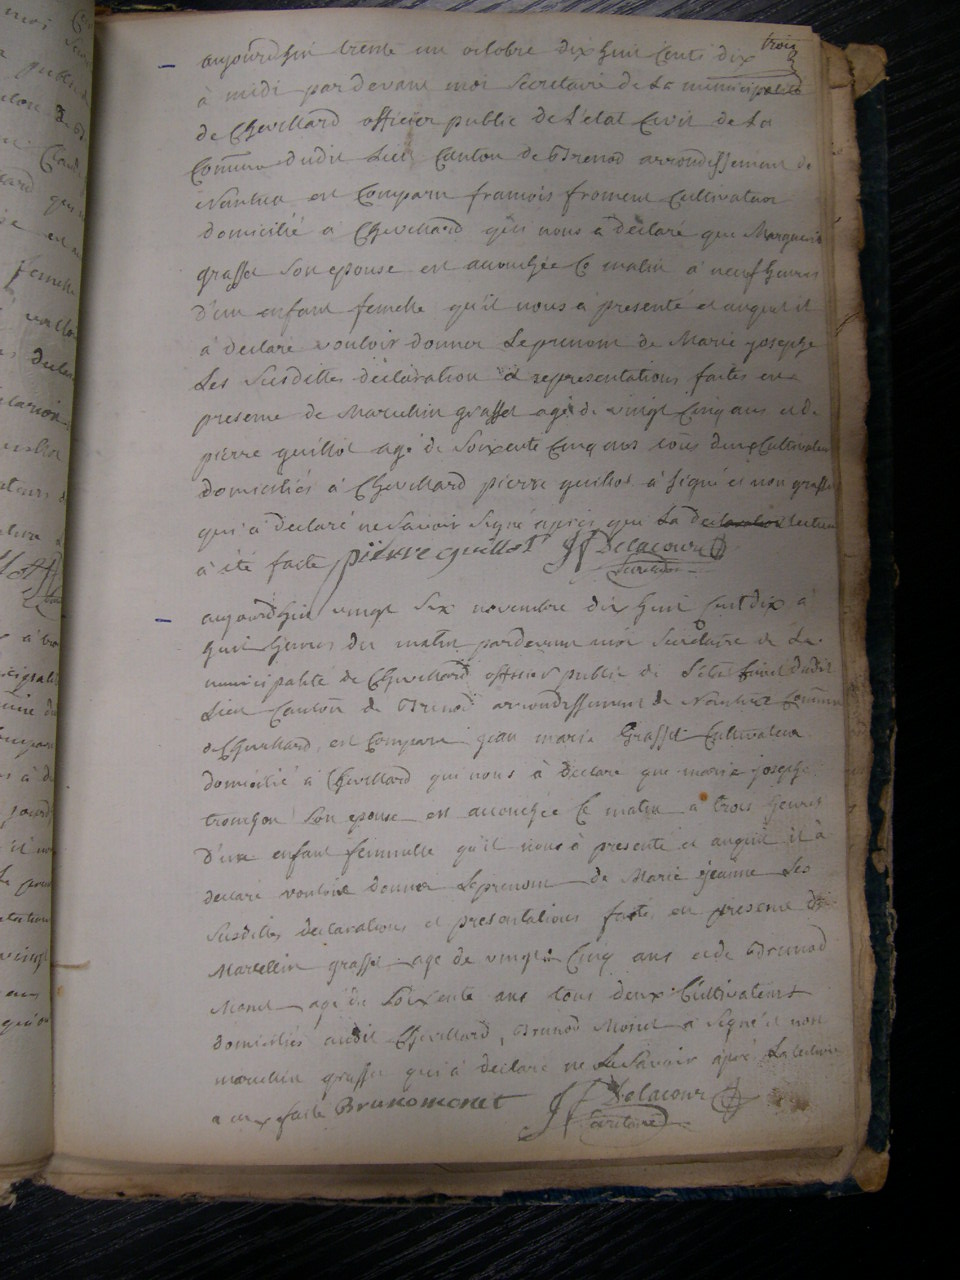 trois
aujourdhui trente un octobre dix huit Cents dix
à midi pardevant moi Secretaire de La municipalité
de Chevillard officier public de L'état Civil de La
Commune dudit Lieu Canton de Brenod arrondissement de
Nantua est Comparu francois froment Cultivateur
domicilié a Chevillard qui nous a déclaré que Marguerit
grasset Son epouse est accouchée Ce matin à neuf heures
d'un enfant femelle qu'il nous à presenté et auquel il
à declaré vouloir donner Leprenom de Marie josephe
Les Susdittes déclaration et representations faites en
presence de Marcelin grasset agé de vingt Cinq ans et de
pierre guillot agé de Soixente Cinq ans tous deux Cultivateur
domiciliés à Chevillard pierre guillot à signé et non grasset
qui à declaré ne Savoir Signé après que La declaration lecture
à été faite pierre guillot JF Delacour
Secretaire
aujourdhui vingt Six novembre dix huit Cent dix à
huit heures du matin pardevant moi Secretaire de La
municipalité de Chevillard officier public de L'état Civil dudit
Lieu Canton de Brenod arrondissement de Nantua Commune
de Chevillard, est Comparu jean marie Grasset Cultivateur
domicilié à Chevillard qui nous à declaré que marie josephe
Son epouse est accouchée Ce matin à trois heures
d'une enfant femmelle qu'il nous à presenté et auquel il à
declaré vouloir donner Leprenom de Marie jeanne Les
Susdittes declarations et presentations faites en presence de
Marcellin grasset age de vingt Cinq ans et de Brunod
Monet agé de Soixente ans tous deux Cultivateurs
domiciliés audit Chevillard, Brunod Monet a Signé et non
marcelin grasset qui à declaré ne Le Savoir après La lecture
a eux faite Brunomonet JF Delacour
Secretaire